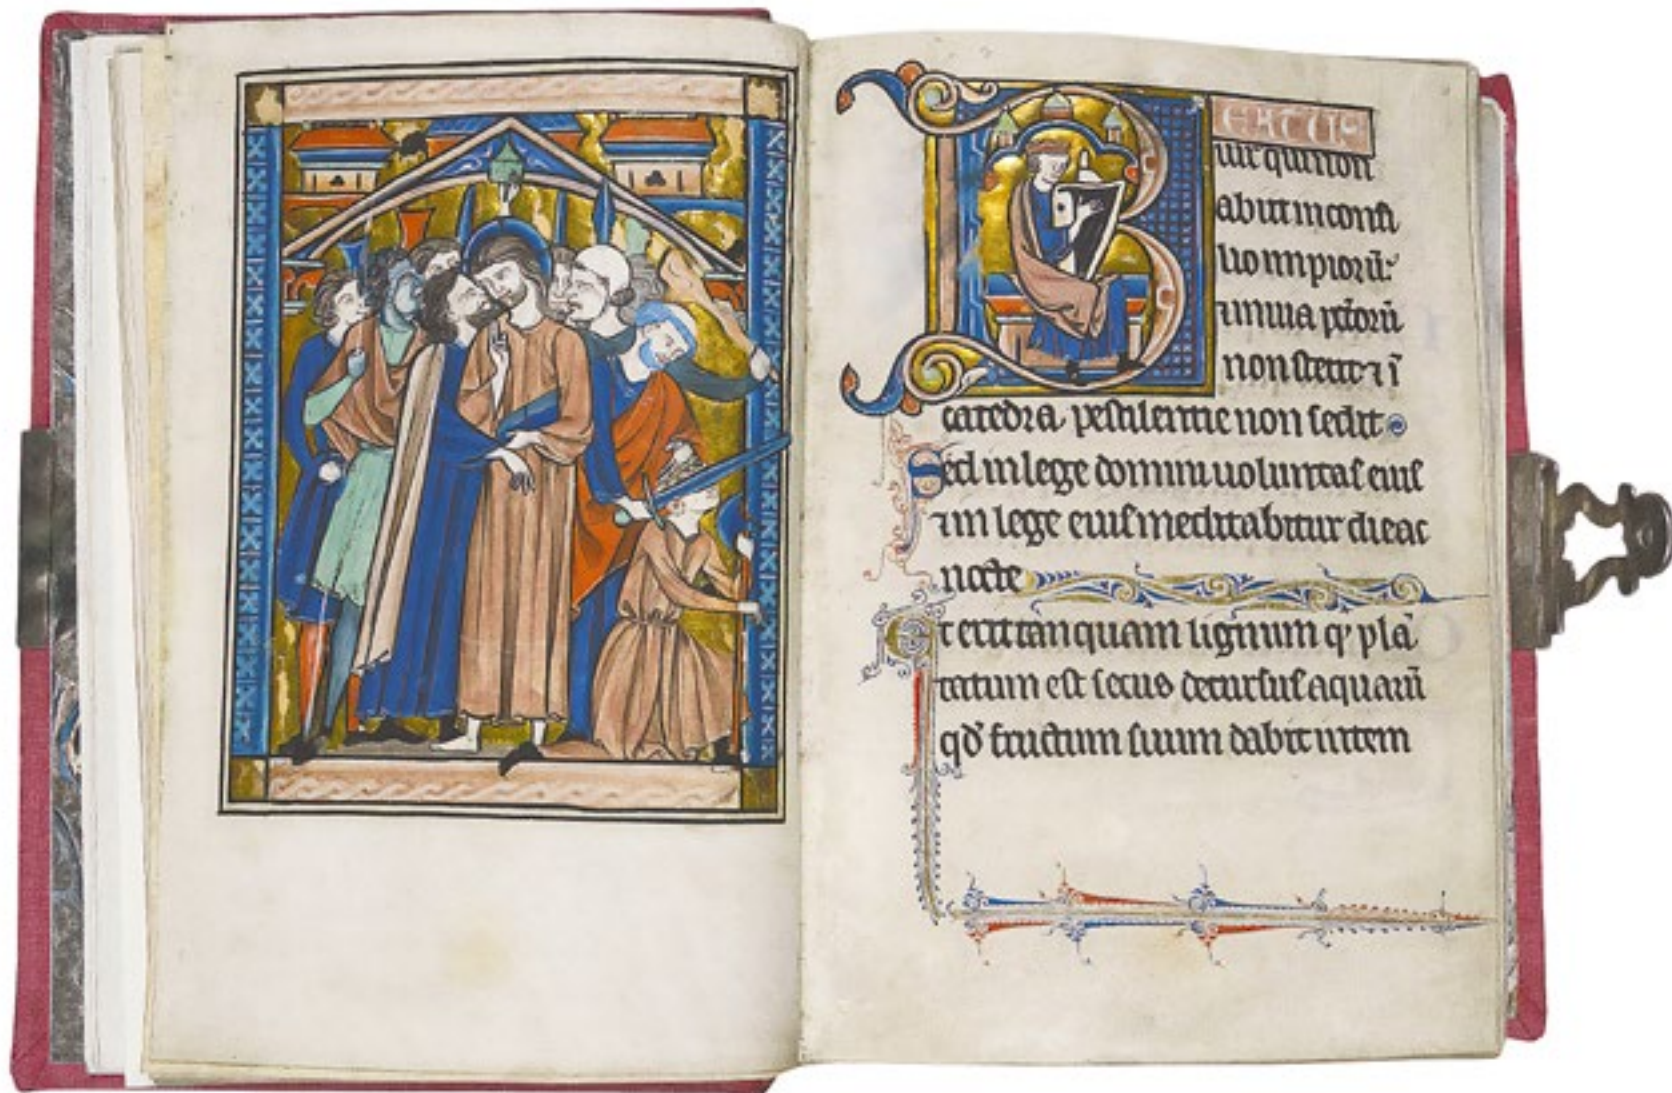 BEATUS
uir qui non
abiit in consi
lio impiorū:
⁊ in uia pctorū
non stetit ⁊ ī
catedra pestilentie non sedit
Sed in lege domini uoluntas eius
⁊ in lege eius meditabitur die ac
nocte
Et erit tanquam lignum qͥ plā
tatum est secus decursus aquarū
qd̄ fructum suum dabit in tem